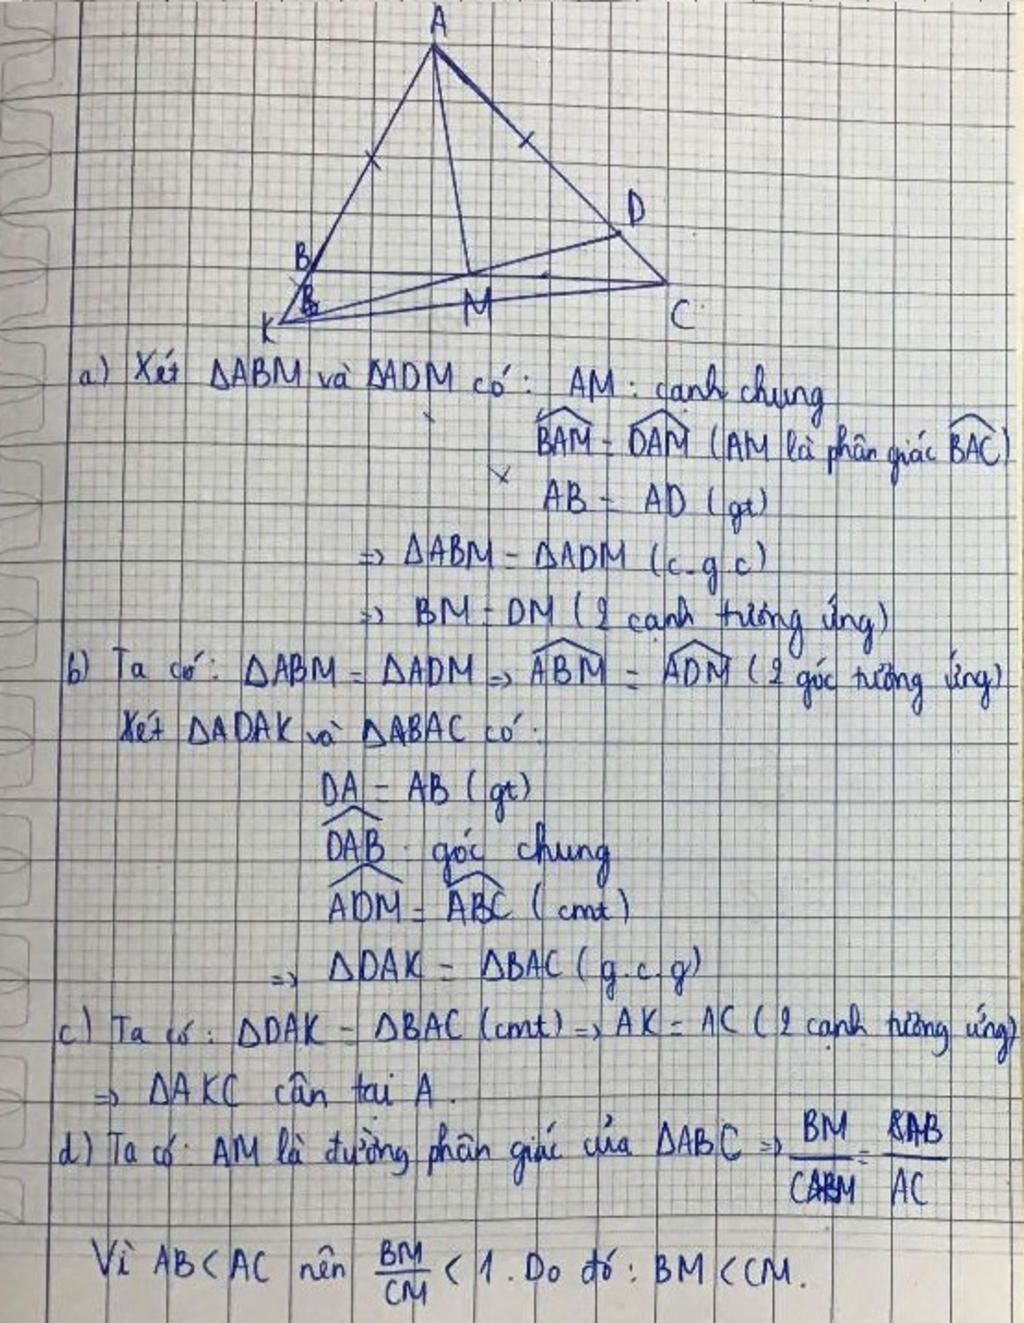 A
D
B
M
K
C
a) Xét ΔABM và ΔADM có: AM: cạnh chung
BAM = DAM (AM là phân giác BAC)
AB = AD (gt)
=> ΔABM = ΔADM (c.g.c)
=> BM = DM (2 cạnh tương ứng)
b) Ta có: ΔABM = ΔADM => ABM = ADM (2 góc tương ứng)
Xét ΔADAK và ΔABAC có:
DA = AB (gt)
DAB: góc chung
ADM = ABC (cmt)
=> ΔDAK = ΔBAC (g.c.g)
c) Ta có: ΔDAK = ΔBAC (cmt) => AK = AC (2 cạnh tương ứng)
=> ΔAKC cân tại A.
d) Ta có: AM là đường phân giác của ΔABC => BM/CM = AB/AC
Vì AB < AC nên BM/CM < 1. Do đó: BM < CM.